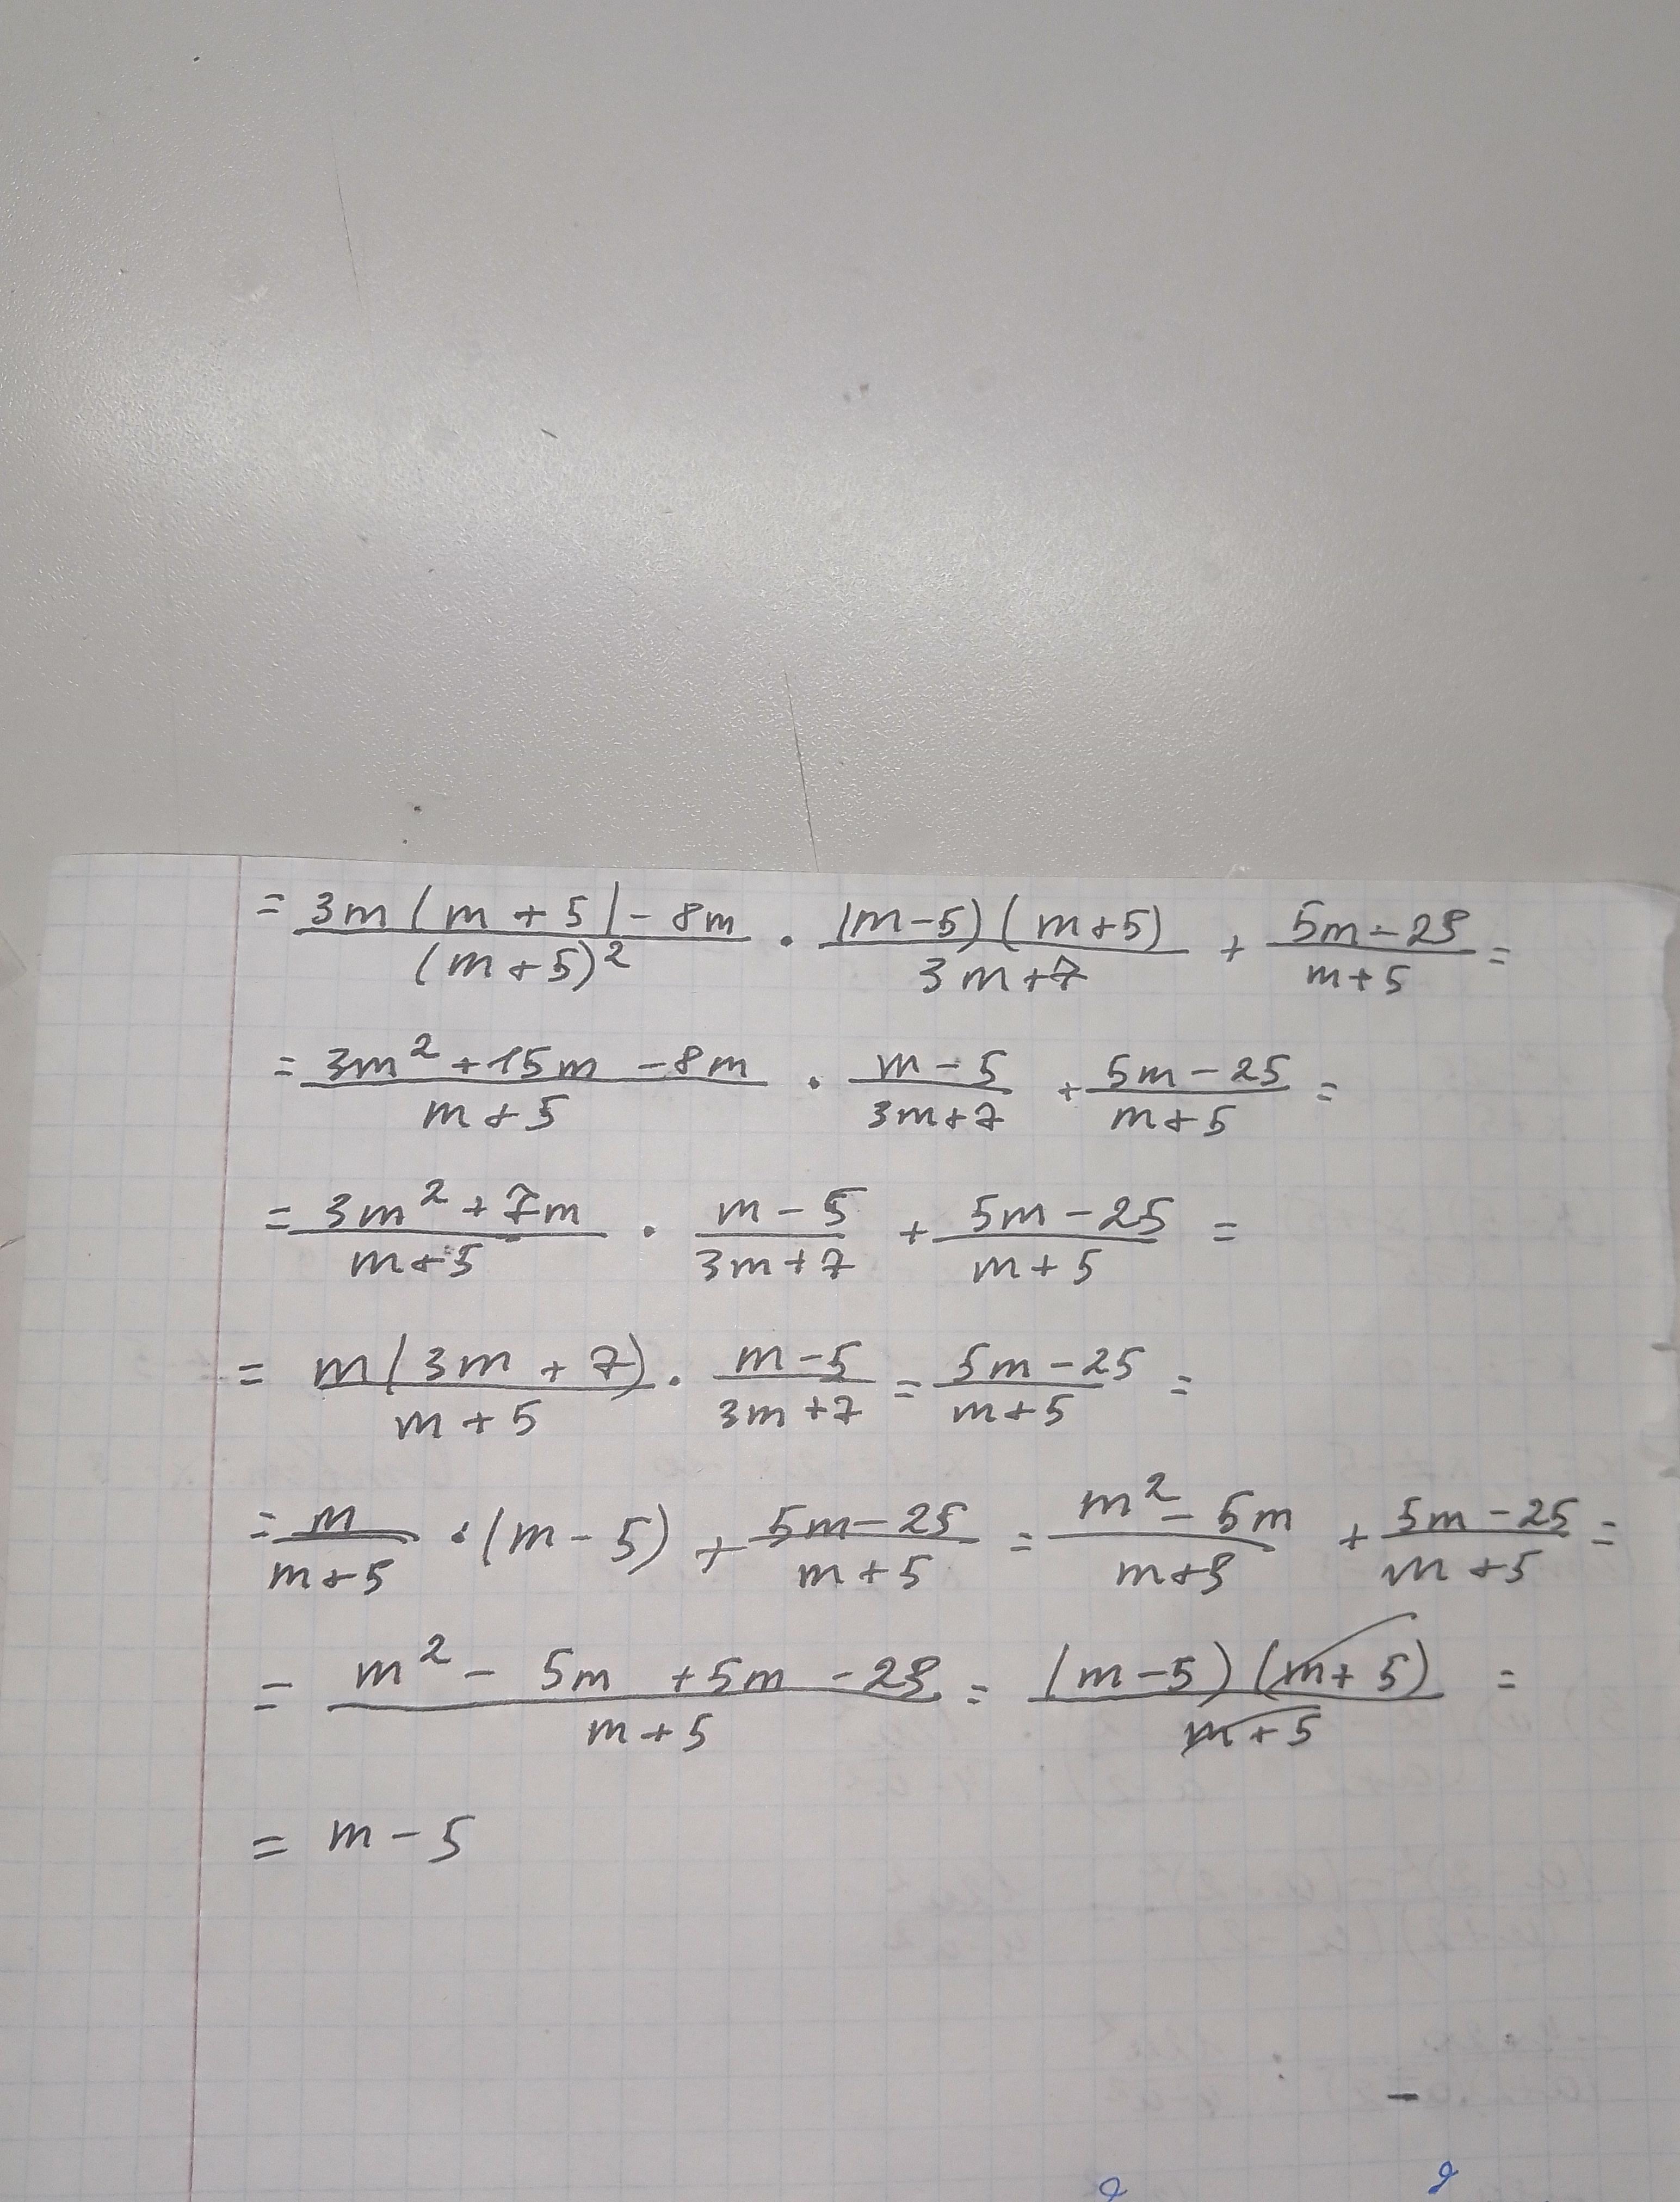 = (3m(m+5)-8m)/((m+5)²) · ((m-5)(m+5))/(3m+7) + (5m-25)/(m+5) =
= (3m²+15m-8m)/(m+5) · (m-5)/(3m+7) + (5m-25)/(m+5) =
= (3m²+7m)/(m+5) · (m-5)/(3m+7) + (5m-25)/(m+5) =
= (m(3m+7))/(m+5) · (m-5)/(3m+7) = (5m-25)/(m+5) =
= m/(m+5) · (m-5) + (5m-25)/(m+5) = (m²-5m)/(m+5) + (5m-25)/(m+5) =
= (m²-5m+5m-25)/(m+5) = ((m-5)(m+5))/(m+5) =
= m-5